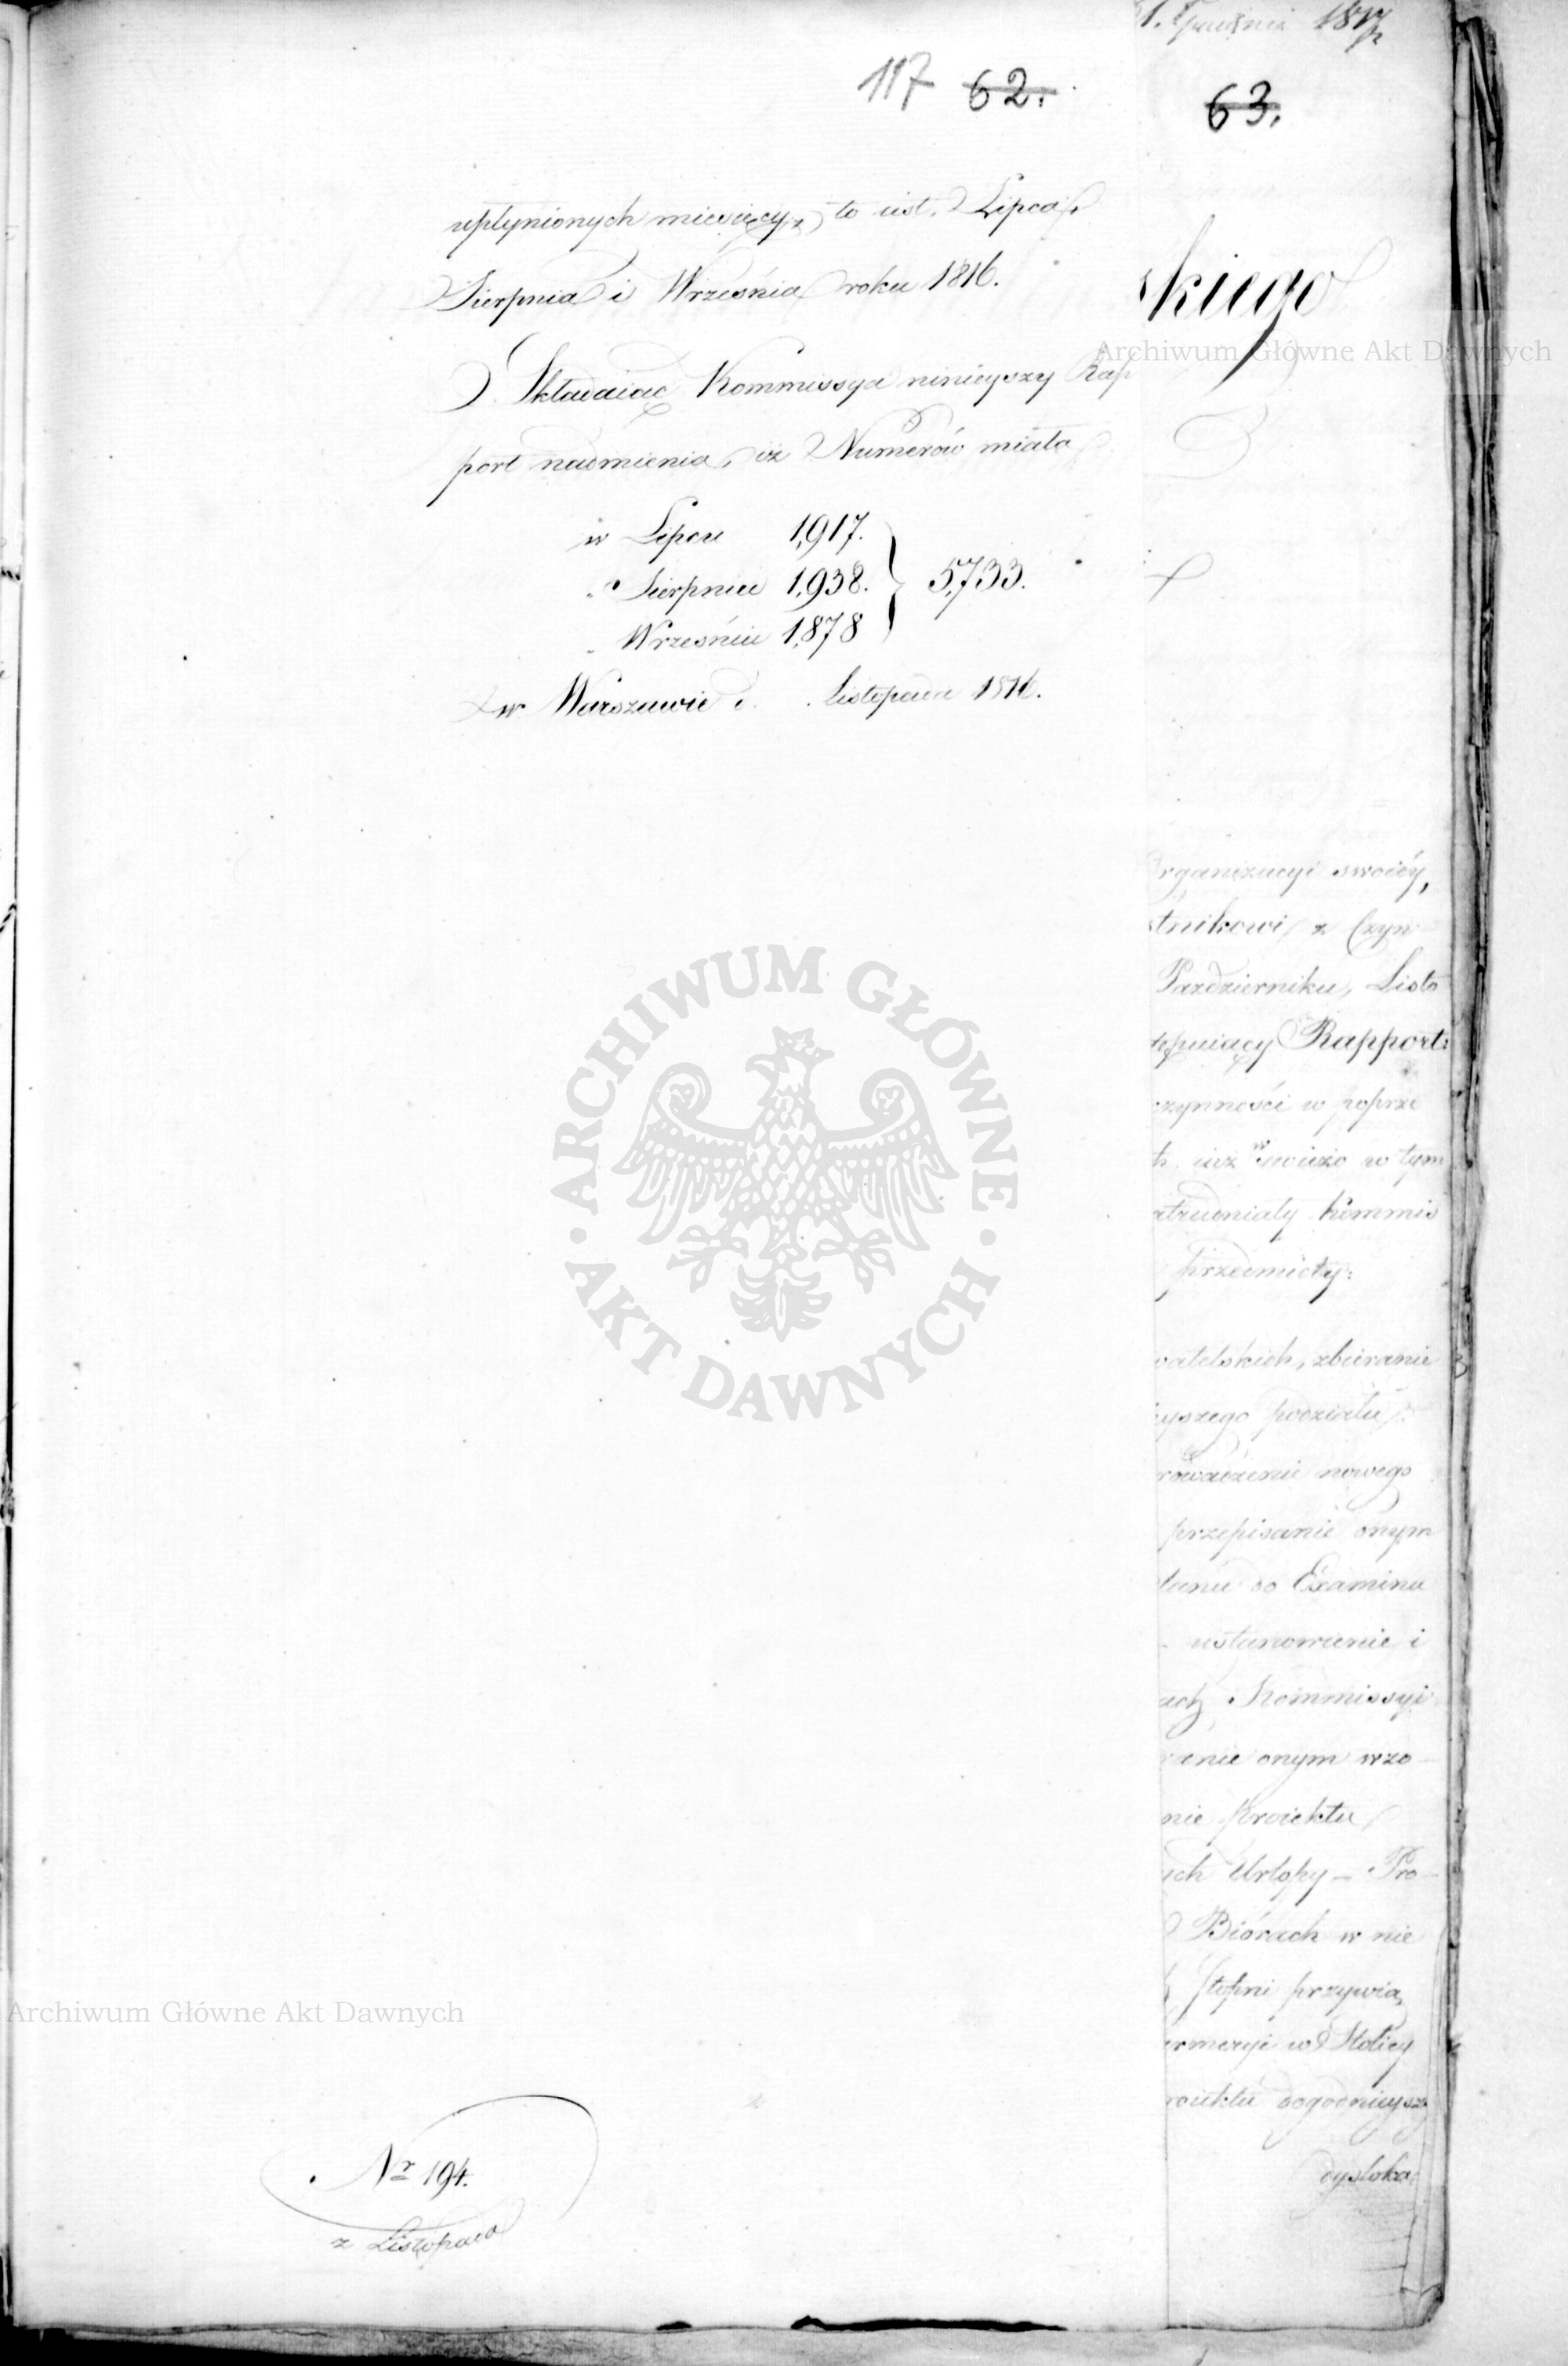 117 62.
upłynionych miesięcy, to iest. Lipca,
Sierpnia i Września roku 1816.
Składaiąc Kommissya ninieyszy Rap
port nadmienia, iż Numerów miała
w Lipcu 1,917.
„ Sierpniu 1,938. } 5,733.
„ Wrześniu 1,878
w Warszawie d. Listopada 1816.
Nr 194.
z Listopada
63.
skiego
Organizacyi swoiéy,
stnikowi z Czyn
Pazdzierniku, Listo
tępuiący Rapport:
czynności w poprze
iuż w tym
atrudniały Kommis
przedmioty:
watelskich, zbieranie
yszego podziału
rowadzenie nowego
przepisanie onym
do Examinu
ustanowienie i
ach Kommissyi
anie onym wzo
nie proiektu
ych Urlopy – Pro
Biórach w nie
Stopni przywią
w Stolicy
roiektu dogodnieysz
dysloka
Archiwum Główne Akt Dawnych
ARCHIWUM GŁÓWNE · AKT DAWNYCH ·
Archiwum Główne Akt Dawnych